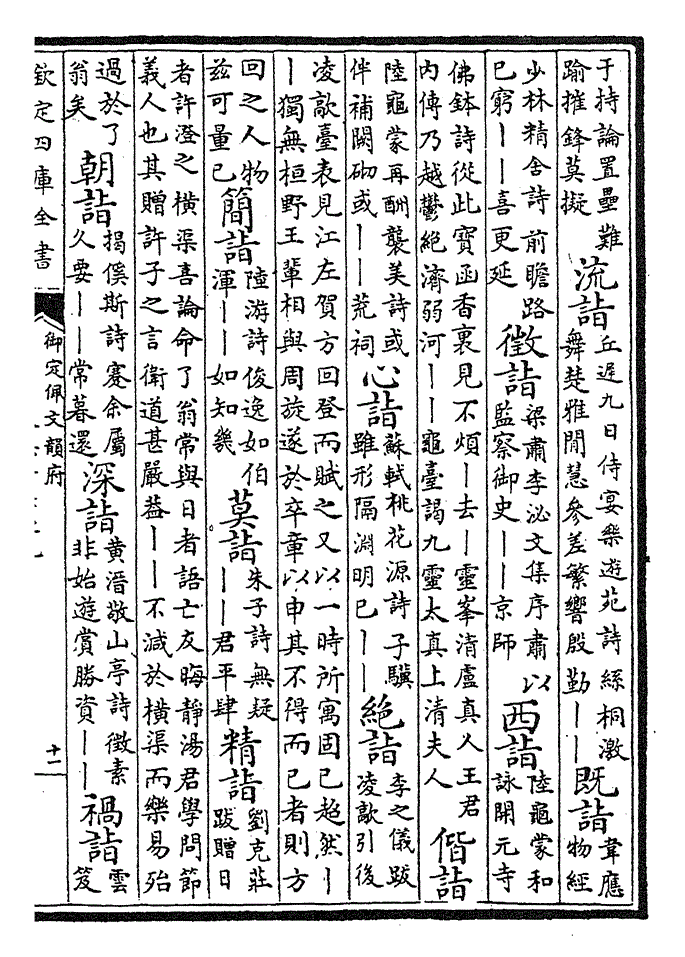 于持論置壘難
踰摧鋒莫擬
流詣
丘遲九日侍宴樂遊苑詩絲桐激
舞楚雅閒慧參差繁響殷勤——
既詣
韋應
物經
少林精舍詩前瞻路
已窮——喜更延
徵詣
梁肅李泌文集序肅以
監察御史——京師
西詣
陸龜蒙和
詠開元寺
佛鉢詩從此寶函香裏見不煩—去—靈峯清虛真人王君
內傳乃越鬱絕濟弱河——龜臺謁九靈太真上清夫人
偕詣
陸龜蒙再酬襲美詩或
伴補闕砌或——荒祠
心詣
蘇軾桃花源詩子驥
雖形隔淵明已——
絕詣
李之儀跋
凌歊引後
凌歊臺表見江左賀方回登而賦之又以一時所寓固已超然—
—獨無桓野王輩相與周旋遂於卒章以申其不得而已者則方
回之人物
茲可量已
簡詣
陸游詩俊逸如伯
渾——如知幾
莫詣
朱子詩無疑
——君平肆
精詣
劉克莊
跋贈日
者許澄之橫渠喜論命了翁常與日者語亡友晦靜湯君學問節
義人也其贈許子之言衛道甚嚴葢——不減於橫渠而樂易殆
過於了
翁矣
朝詣
揭傒斯詩蹇余屬
久要——常暮還
深詣
黃溍敬山亭詩徵素
非始遊賞勝資——
禍詣
雲
笈
欽定四庫全書
御定佩文韻府
十一